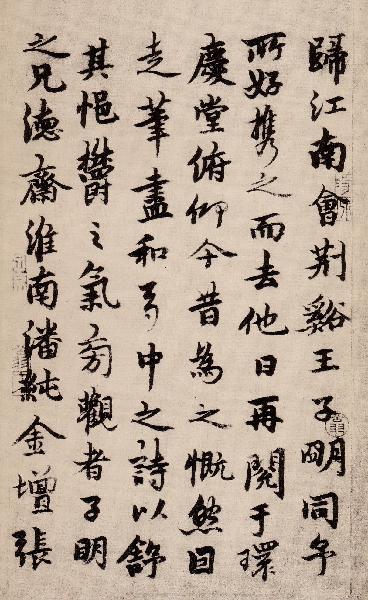 歸江南會荆谿王子明同予
所好携之而去他日再閱于環
慶堂俯仰今昔為之慨然因
走筆盡和卷中之詩以舒
其悒鬱之氣旁觀者子明
之兄德齋淮南潘純金壇張